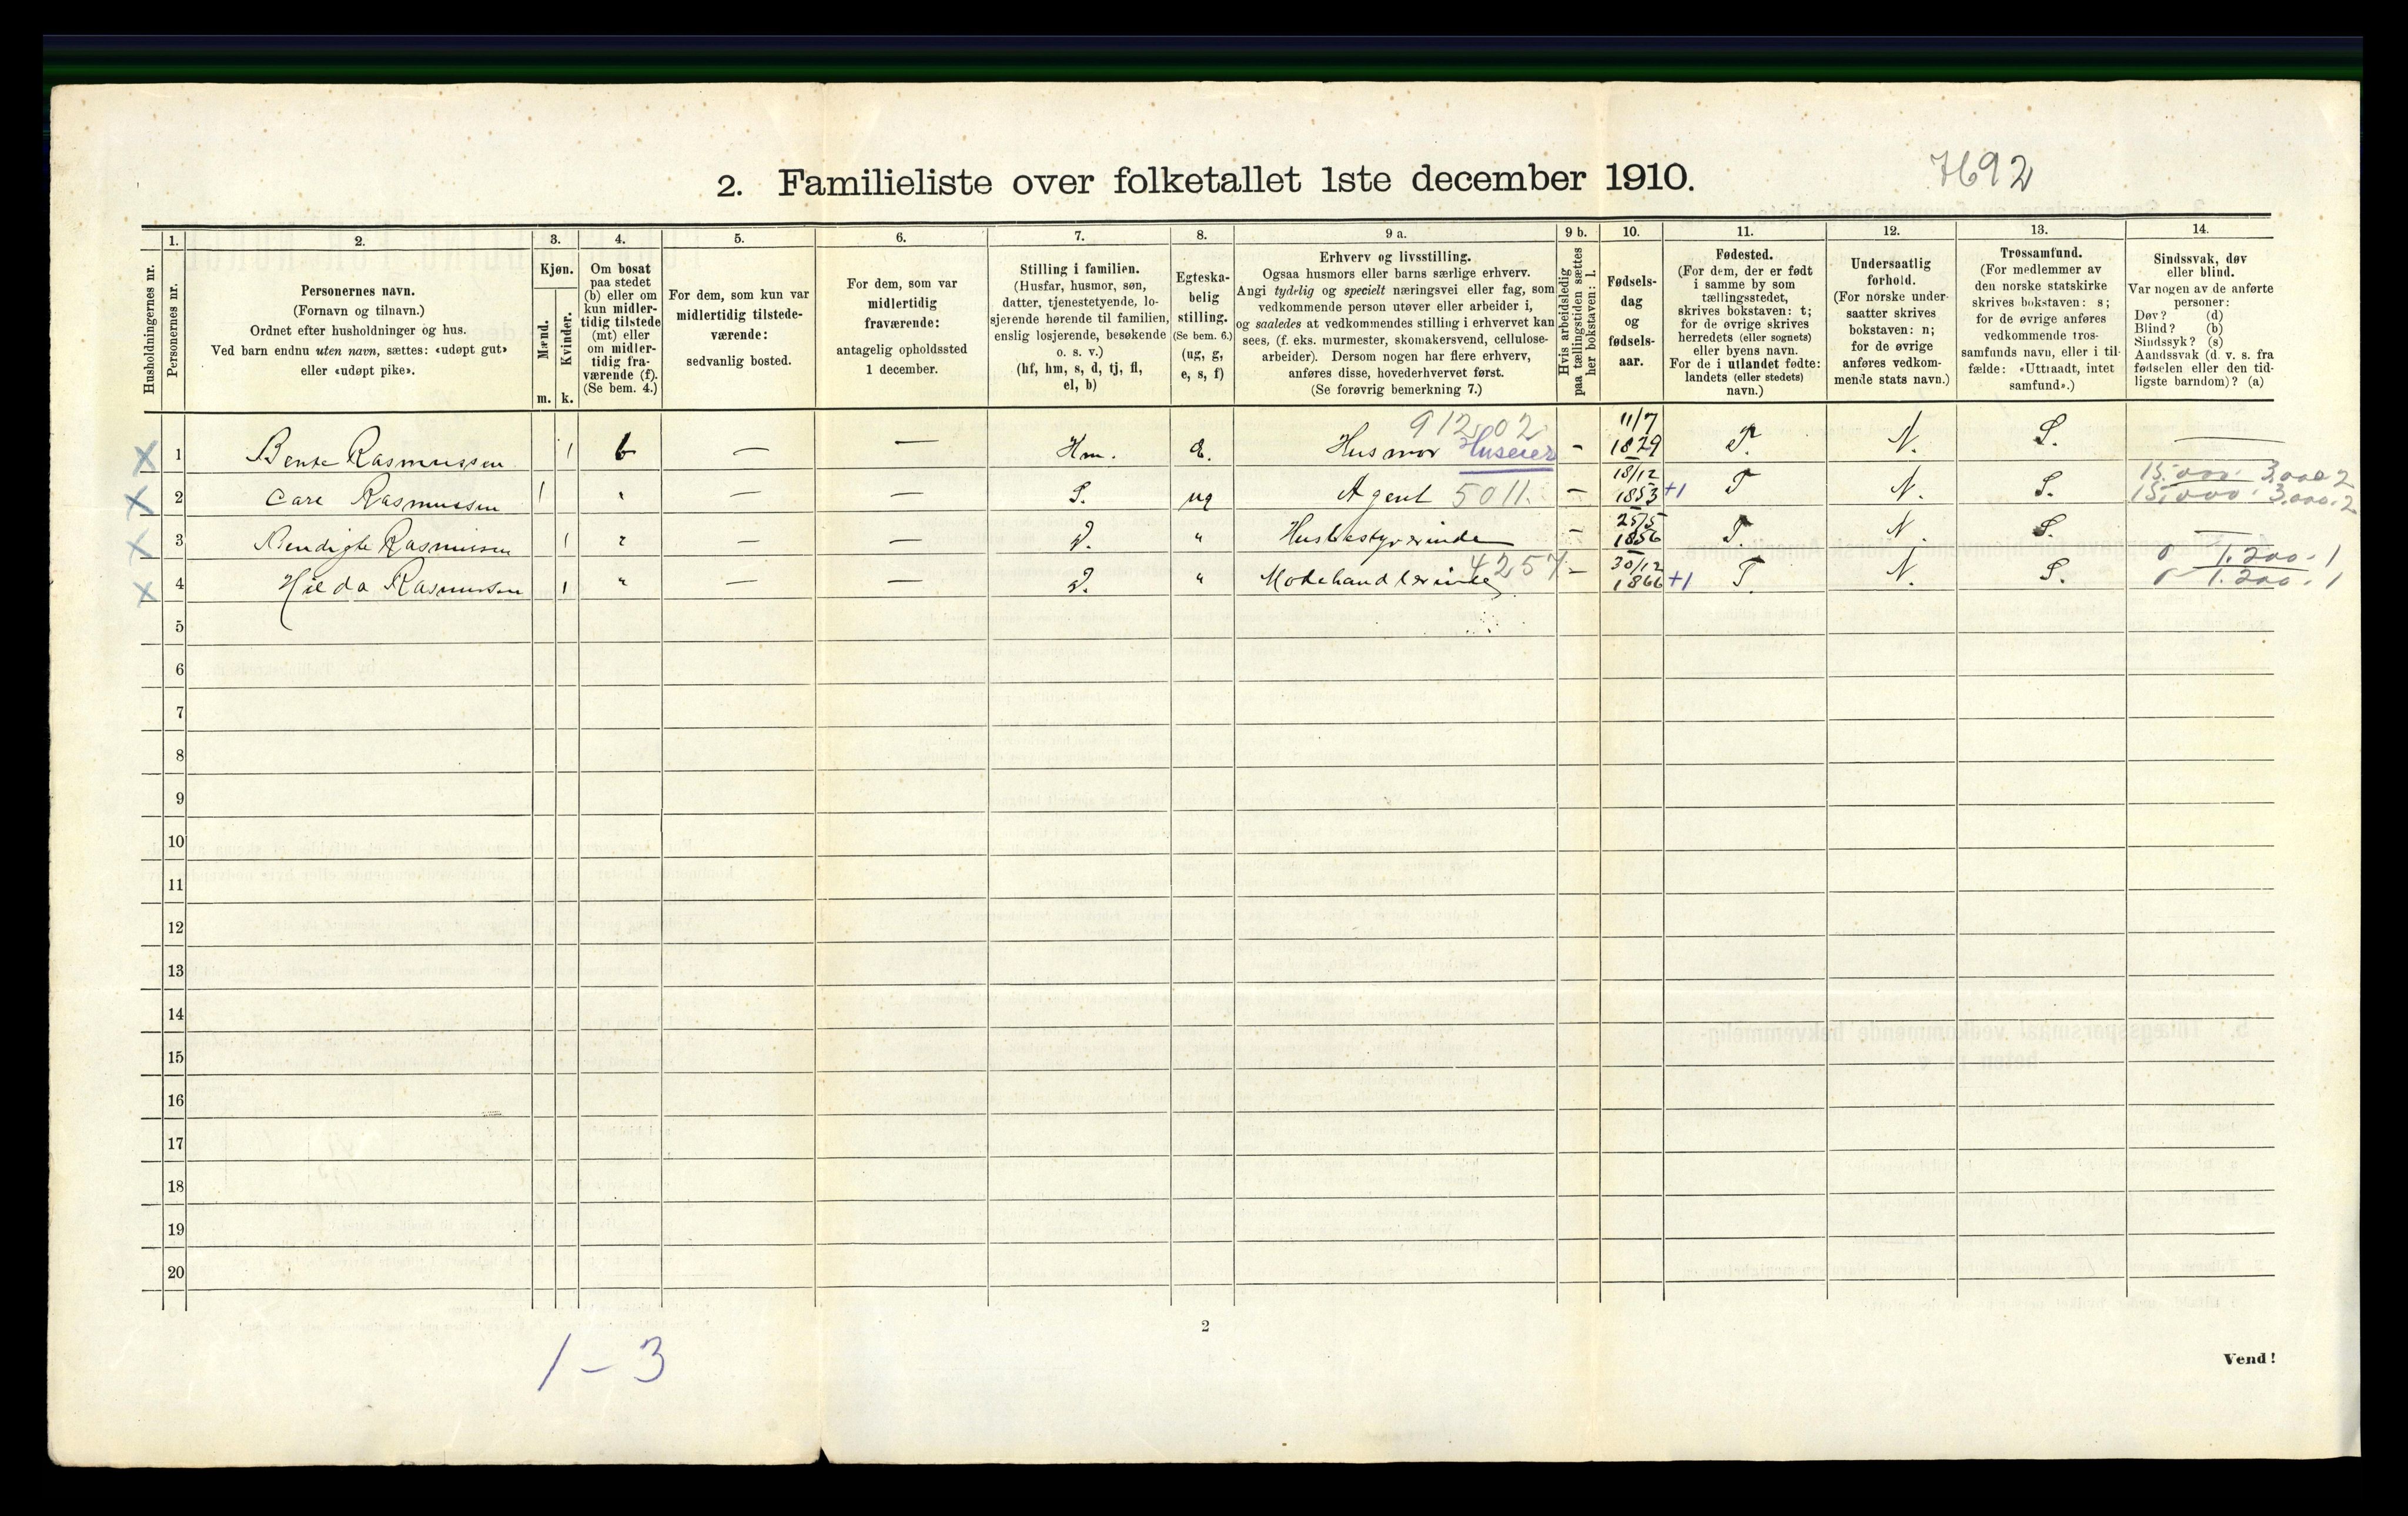 2. Familieliste over folketallet 1ste december 1910.
7692
Husholdningernes nr.
1.
Personernes nr.
2.
Personernes navn.
(Fornavn og tilnavn.)
Ordnet efter husholdninger og hus.
Ved barn endnu uten navn, sættes: «udøpt gut»
eller «udøpt pike».
3.
Kjøn.
Mænd.
Kvinder.
m. k.
4.
Om bosat
paa stedet
(b) eller om
kun midler-
tidig tilstede
(mt) eller
om midler-
tidig fra-
værende (f).
(Se bem. 4.)
5.
For dem, som kun var
midlertidig tilstede-
værende:
sedvanlig bosted.
6.
For dem, som var
midlertidig
fraværende:
antagelig opholdssted
1 december.
7.
Stilling i familien.
(Husfar, husmor, søn,
datter, tjenestetyende, lo-
sjerende hørende til familien,
enslig losjerende, besøkende
o. s. v.)
(hf, hm, s, d, tj, fl,
el, b)
8.
Egteska-
belig
stilling.
(Se bem. 6.)
(ug, g,
e, s, f)
9 a.
Erhverv og livsstilling.
Ogsaa husmors eller barns særlige erhverv.
Angi tydelig og specielt næringsvei eller fag, som
vedkommende person utøver eller arbeider i,
og saaledes at vedkommendes stilling i erhvervet kan
sees, (f. eks. murmester, skomakersvend, cellulose-
arbeider). Dersom nogen har flere erhverv,
anføres disse, hovederhvervet først.
(Se forøvrig bemerkning 7.)
9 b.
Hvis arbeidsledig
paa tællingstiden sættes
her bokstaven: l.
10.
Fødsels-
dag
og
fødsels-
aar.
11.
Fødested.
(For dem, der er født
i samme by som
tællingsstedet,
skrives bokstaven: t;
for de øvrige skrives
herredets (eller sognets)
eller byens navn.
For de i utlandet fødte:
landets (eller stedets)
navn.)
12.
Undersaatlig
forhold.
(For norske under-
saatter skrives
bokstaven: n;
for de øvrige
anføres vedkom-
mende stats navn.)
13.
Trossamfund.
(For medlemmer av
den norske statskirke
skrives bokstaven: s;
for de øvrige anføres
vedkommende tros-
samfunds navn, eller i til-
fælde: «Uttraadt, intet
samfund».)
14.
Sindssvak, døv
eller blind.
Var nogen av de anførte
personer:
Døv? (d)
Blind? (b)
Sindssyk? (s)
Aandssvak (d. v. s. fra
fødselen eller den tid-
ligste barndom)? (a)
X 1 Bente Rasmussen 1 b — — Hm. E. 912.02 Husmor Huseier - 11/7 1829 T. N. S. —
X 2 Carl Rasmussen 1 " — — S. ug Agent 5011. - 18/12 1853 +1 T N. S. 15.000. 3.000.2
15.000. 3.000.2
X 3 Bendigte Rasmussen 1 " — — D. " Husbestyrerinde - 25/5 1856 T. N. S. —
X 4 Hilda Rasmussen 1 " — — D. " Motehandlerinde 4257 - 30/12 1866 +1 T. N. S. 0 1.200. 1
0 1.200. 1
5
6
7
8
9
10
11
12
13
14
15
16
17
18
19
20
1 – 3
2
Vend!